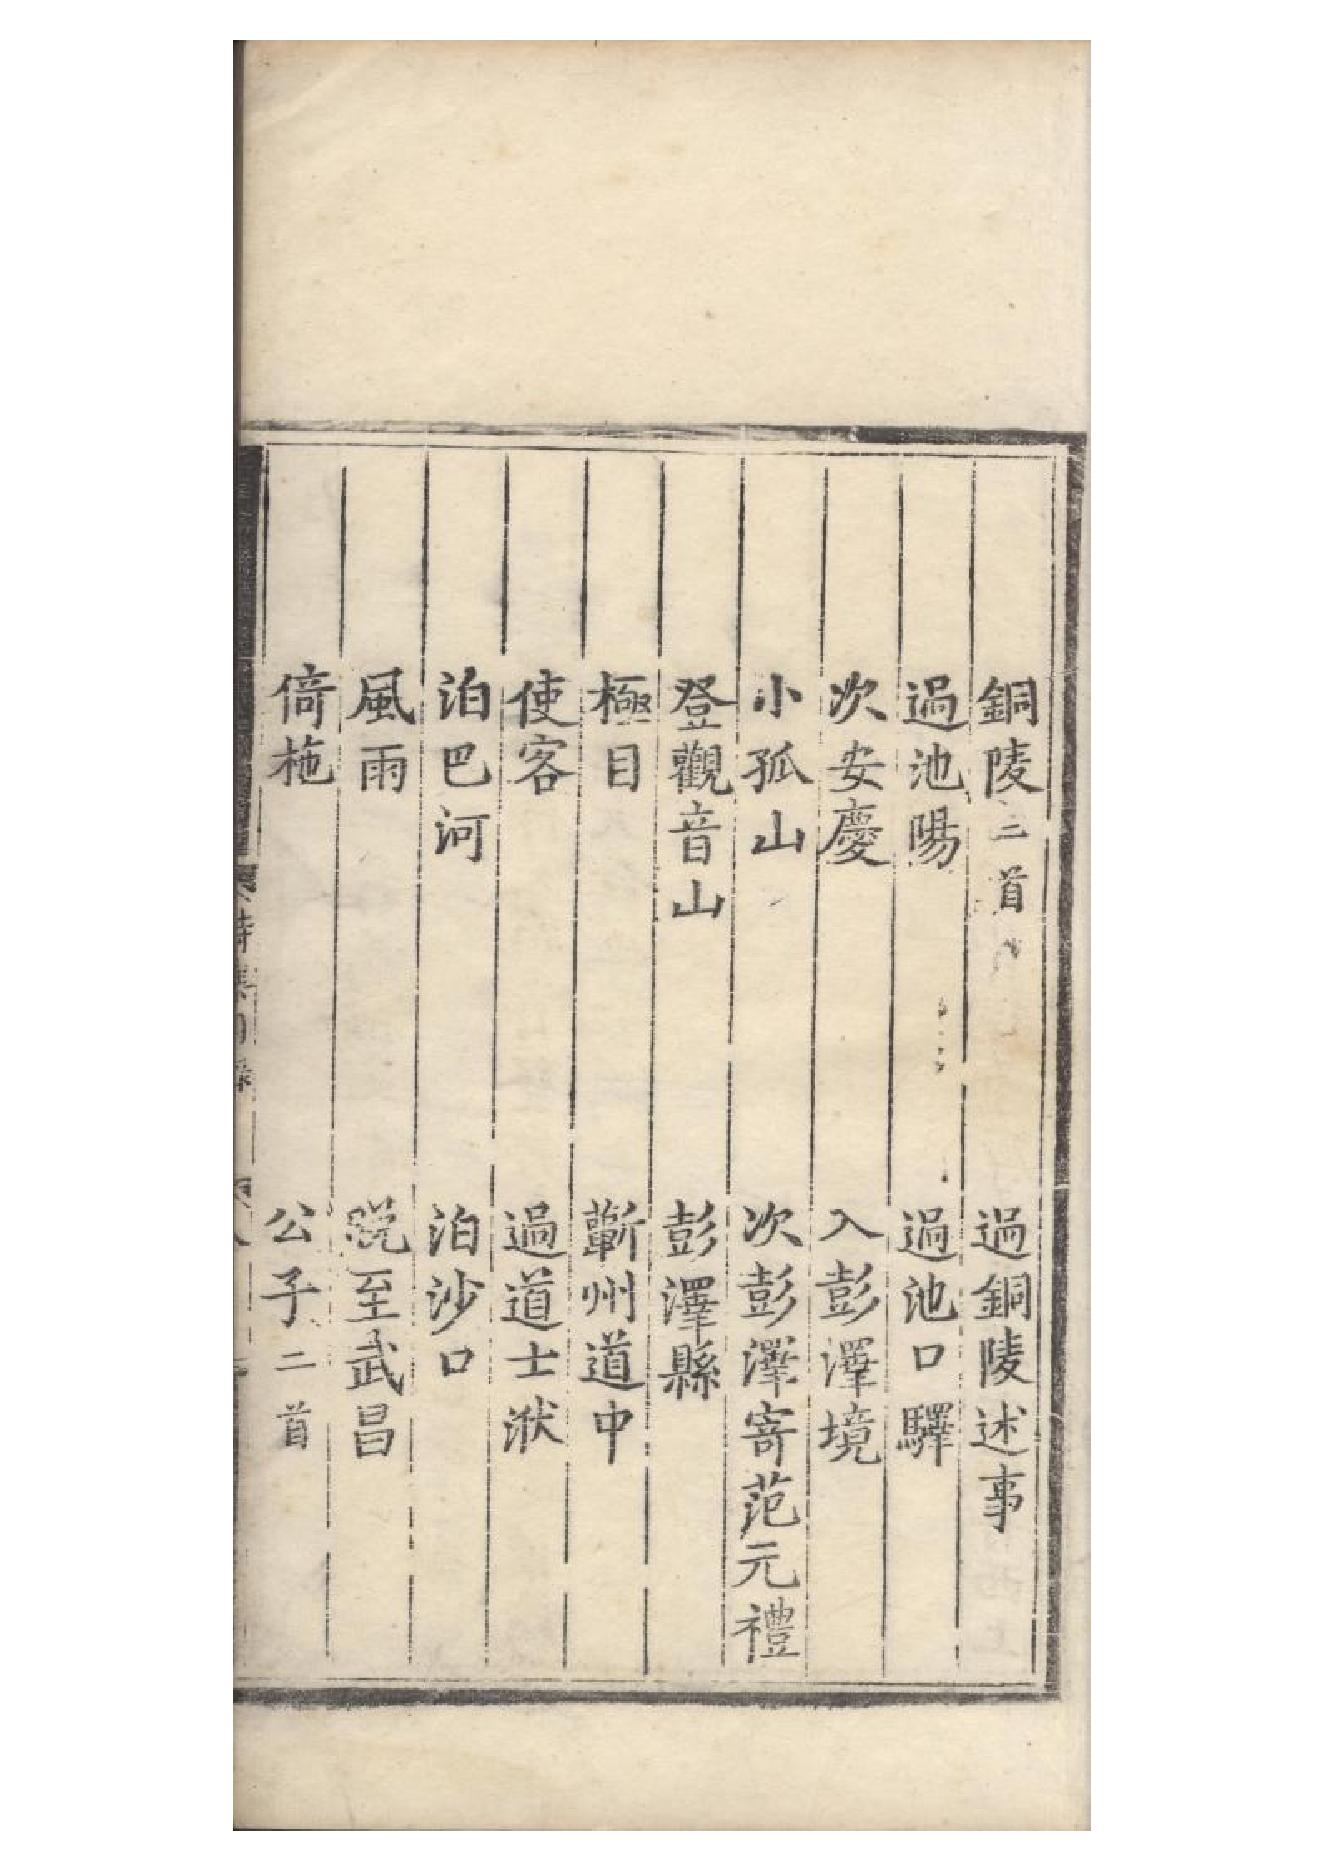 銅陵二首 過銅陵述事
過池陽 過池口驛
次安慶 入彭澤境
小孤山 次彭澤寄范元禮
登觀音山 彭澤縣
極目 蘄州道中
使客 過道士洑
泊巴河 泊沙口
風雨 晚至武昌
倚柂 公子二首